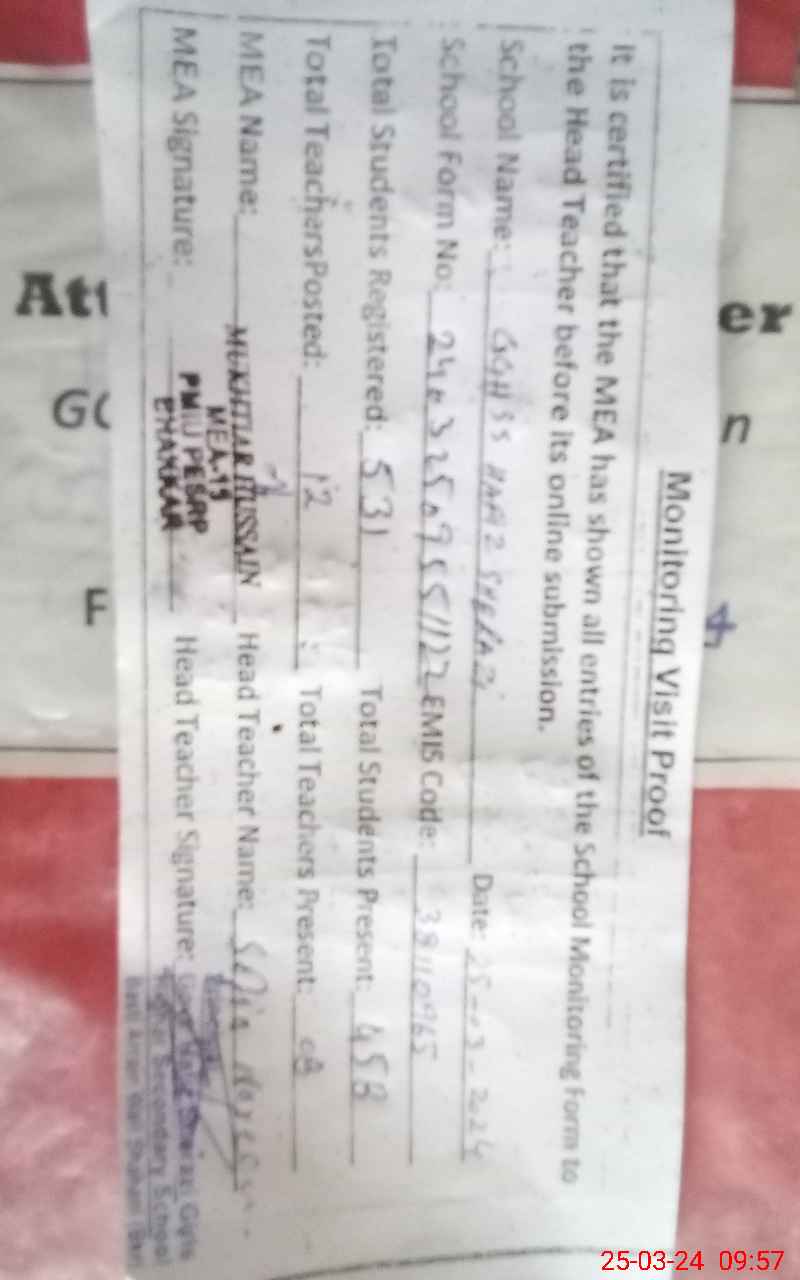 Monitoring Visit Proof
It is certified that the MEA has shown all entries of the School Monitoring Form to
the Head Teacher before its online submission.
School Name: GGHSS HAFIZ SHERAZI Date: 25-03-2024
School Form No: EMIS Code: 38110965
Total Students Registered: 531 Total Students Present: 458
Total TeachersPosted: 12 Total Teachers Present:
MEA Name: MUKHTIAR HUSSAIN Head Teacher Name:
MEA-19
PMIU PESRP
BHAKKAR
MEA Signature: Head Teacher Signature:
Girls
Secondary School
Att
er
n
F
25-03-24 09:57